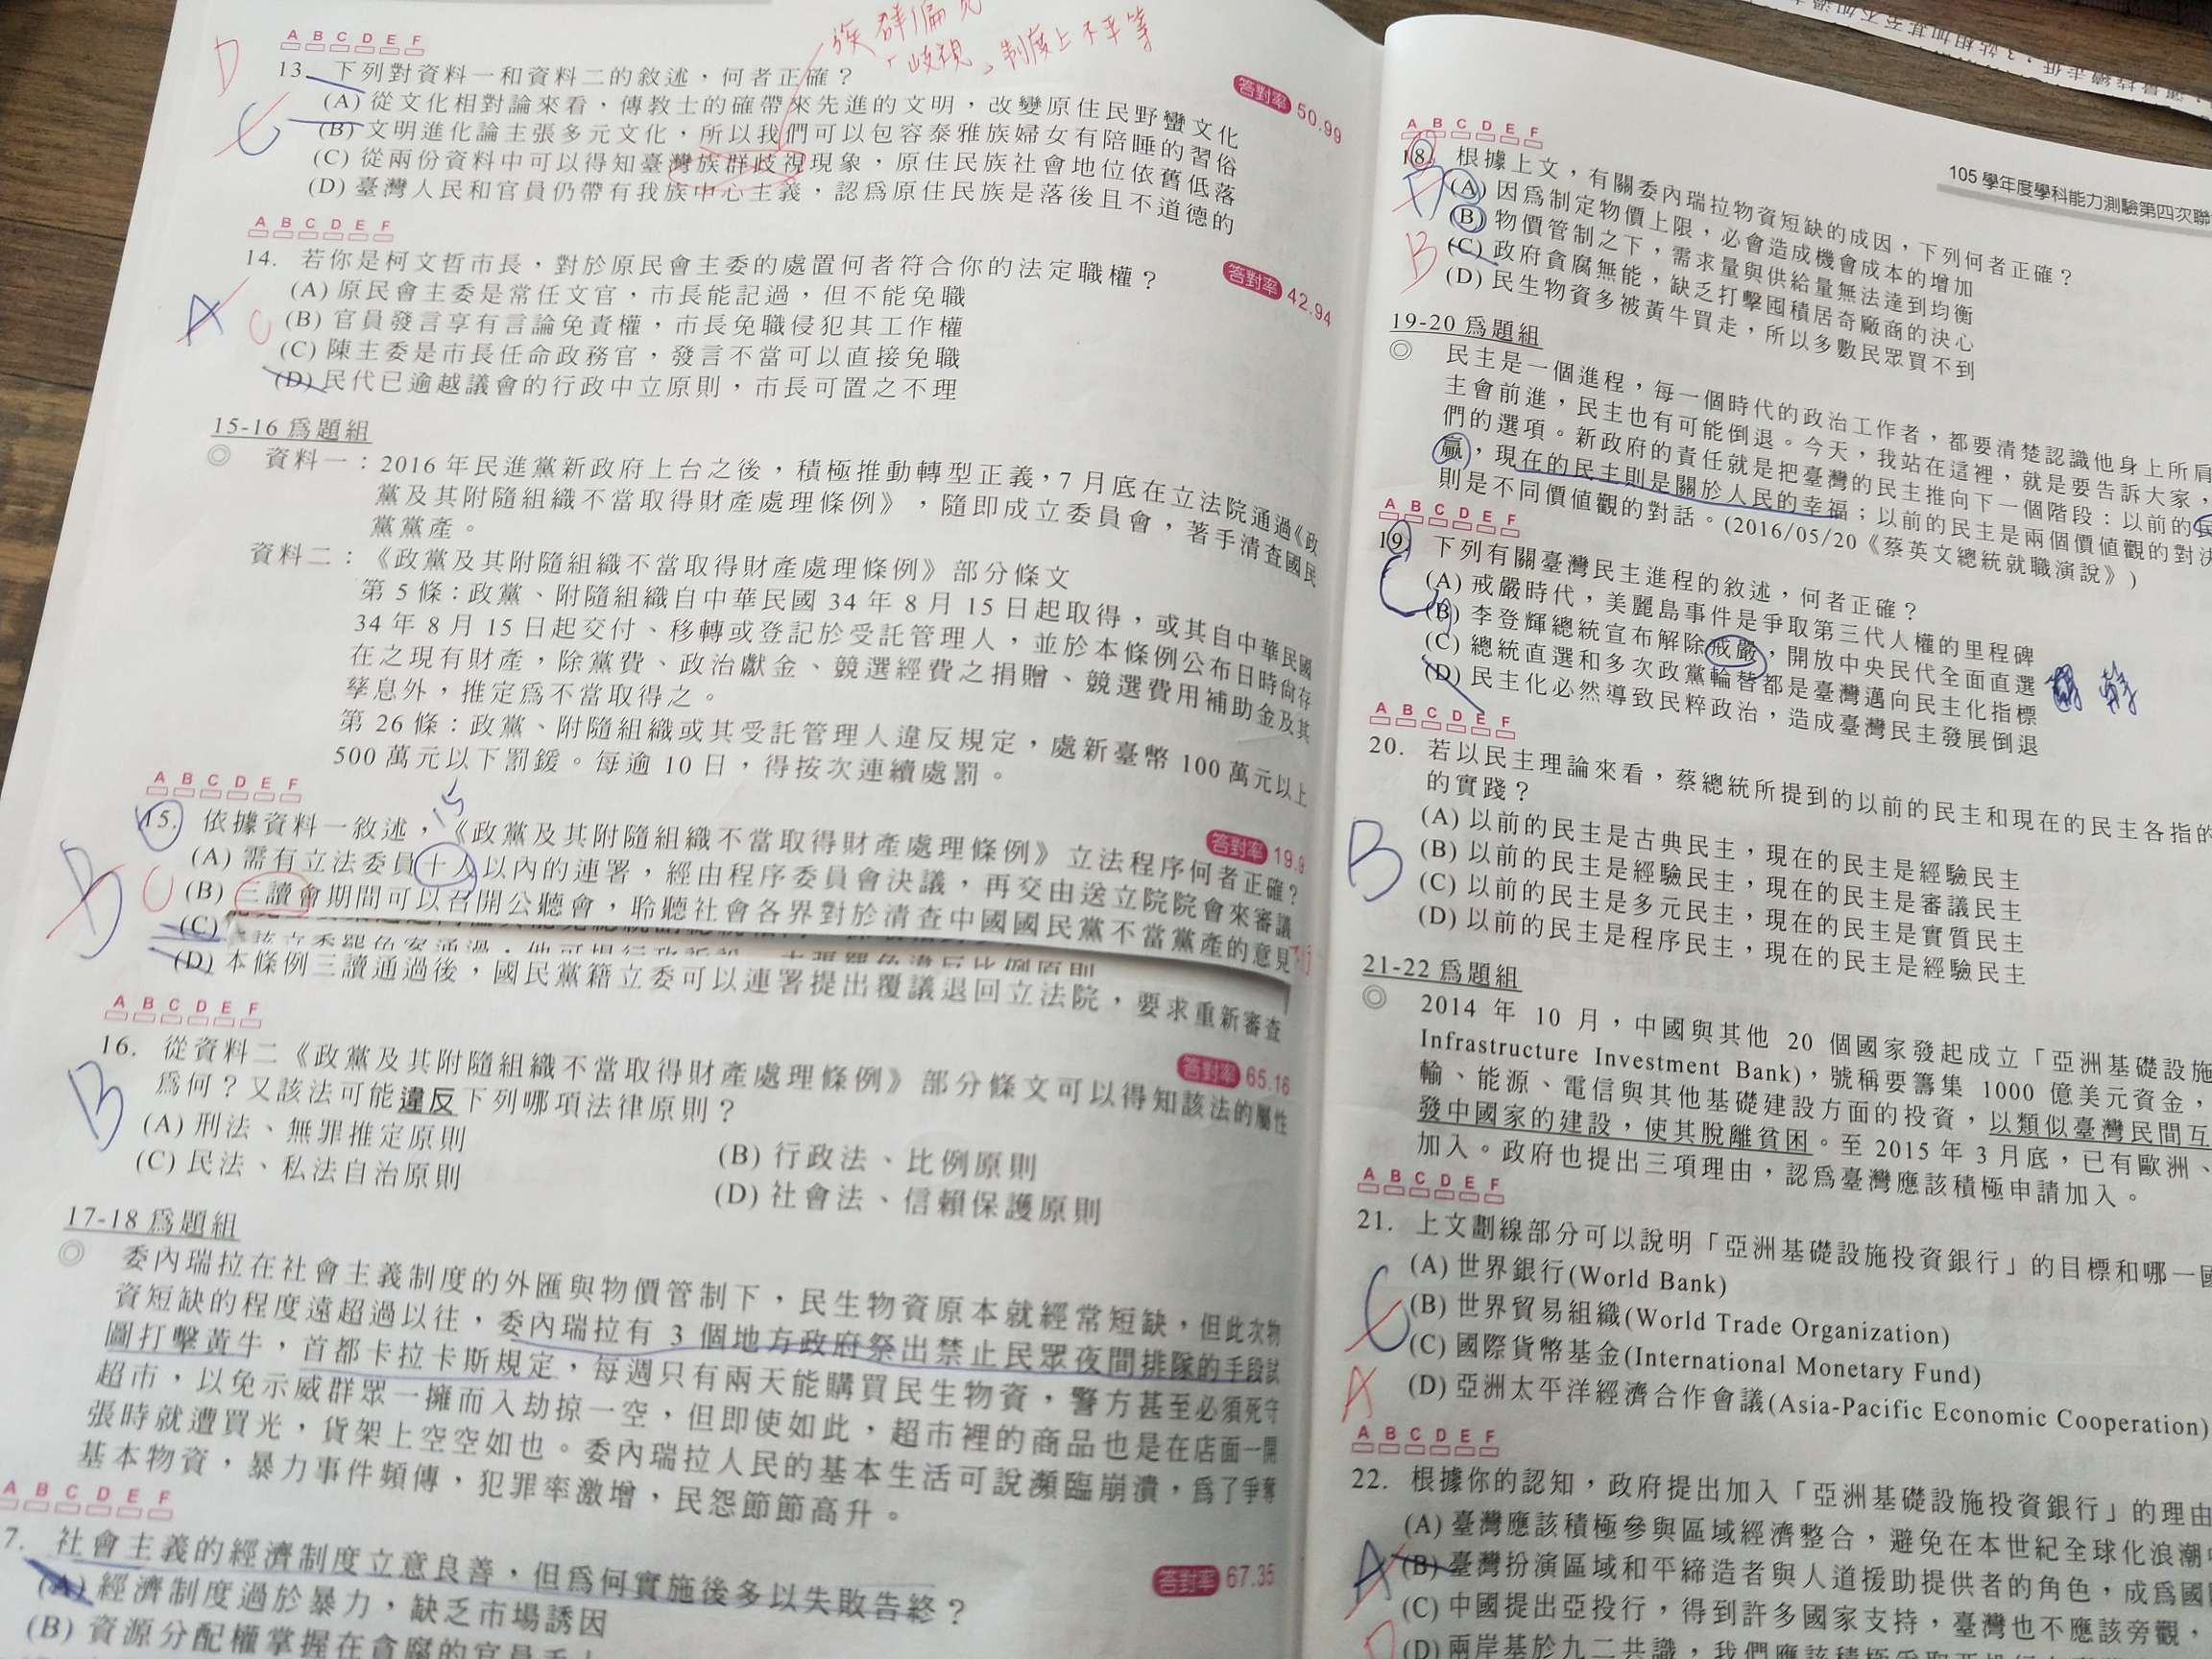 族群偏見
歧視、制度上不平等
A B C D E F
D
C
13. 下列對資料一和資料二的敘述，何者正確？
答對率 50.99
(A) 從文化相對論來看，傳教士的確帶來先進的文明，改變原住民野蠻文化
(B) 文明進化論主張多元文化，所以我們可以包容泰雅族婦女有陪睡的習俗
(C) 從兩份資料中可以得知臺灣族群歧視現象，原住民族社會地位依舊低落
(D) 臺灣人民和官員仍帶有我族中心主義，認為原住民族是落後且不道德的
A B C D E F
14. 若你是柯文哲市長，對於原民會主委的處置何者符合你的法定職權？
答對率 42.94
A
C
(A) 原民會主委是常任文官，市長能記過，但不能免職
(B) 官員發言享有言論免責權，市長免職侵犯其工作權
(C) 陳主委是市長任命政務官，發言不當可以直接免職
(D) 民代已逾越議會的行政中立原則，市長可置之不理
15-16 為題組
◎ 資料一：2016 年民進黨新政府上台之後，積極推動轉型正義，7 月底在立法院通過《政
黨及其附隨組織不當取得財產處理條例》，隨即成立委員會，著手清查國民
黨黨產。
資料二：《政黨及其附隨組織不當取得財產處理條例》部分條文
第 5 條：政黨、附隨組織自中華民國 34 年 8 月 15 日起取得，或其自中華民國
34 年 8 月 15 日起交付、移轉或登記於受託管理人，並於本條例公布日時尚存
在之現有財產，除黨費、政治獻金、競選經費之捐贈、競選費用補助金及其
孳息外，推定為不當取得之。
第 26 條：政黨、附隨組織或其受託管理人違反規定，處新臺幣 100 萬元以上
500 萬元以下罰鍰。每逾 10 日，得按次連續處罰。
A B C D E F
15
15. 依據資料一敘述，《政黨及其附隨組織不當取得財產處理條例》立法程序何者正確？
答對率 19.9
B
C
(A) 需有立法委員十人以內的連署，經由程序委員會決議，再交由送立院院會來審議
(B) 三讀會期間可以召開公聽會，聆聽社會各界對於清查中國國民黨不當黨產的意見
(C)
(D) 本條例三讀通過後，國民黨籍立委可以連署提出覆議退回立法院，要求重新審查
A B C D E F
16. 從資料二《政黨及其附隨組織不當取得財產處理條例》部分條文可以得知該法的屬性
答對率 65.16
為何？又該法可能違反下列哪項法律原則？
B
(A) 刑法、無罪推定原則
(B) 行政法、比例原則
(C) 民法、私法自治原則
(D) 社會法、信賴保護原則
17-18 為題組
◎ 委內瑞拉在社會主義制度的外匯與物價管制下，民生物資原本就經常短缺，但此次物
資短缺的程度遠超過以往，委內瑞拉有 3 個地方政府祭出禁止民眾夜間排隊的手段試
圖打擊黃牛，首都卡拉卡斯規定，每週只有兩天能購買民生物資，警方甚至必須死守
超市，以免示威群眾一擁而入劫掠一空，但即使如此，超市裡的商品也是在店面一開
張時就遭買光，貨架上空空如也。委內瑞拉人民的基本生活可說瀕臨崩潰，為了爭奪
基本物資，暴力事件頻傳，犯罪率激增，民怨節節高升。
A B C D E F
7. 社會主義的經濟制度立意良善，但為何實施後多以失敗告終？
答對率 67.35
(A) 經濟制度過於暴力，缺乏市場誘因
(B) 資源分配權掌握在貪腐的官員手上
105 學年度學科能力測驗第四次聯
A B C D E F
18. 根據上文，有關委內瑞拉物資短缺的成因，下列何者正確？
B
(A) 因為制定物價上限，必會造成機會成本的增加
(B) 物價管制之下，需求量與供給量無法達到均衡
(C) 政府貪腐無能，缺乏打擊囤積居奇廠商的決心
(D) 民生物資多被黃牛買走，所以多數民眾買不到
19-20 為題組
◎ 民主是一個進程，每一個時代的政治工作者，都要清楚認識他身上所肩
主會前進，民主也有可能倒退。今天，我站在這裡，就是要告訴大家，
們的選項。新政府的責任就是把臺灣的民主推向下一個階段：以前的民
贏，現在的民主則是關於人民的幸福；以前的民主是兩個價值觀的對決
則是不同價值觀的對話。(2016/05/20《蔡英文總統就職演說》)
A B C D E F
19. 下列有關臺灣民主進程的敘述，何者正確？
C
(A) 戒嚴時代，美麗島事件是爭取第三代人權的里程碑
(B) 李登輝總統宣布解除戒嚴，開放中央民代全面直選
(C) 總統直選和多次政黨輪替都是臺灣邁向民主化指標
(D) 民主化必然導致民粹政治，造成臺灣民主發展倒退
A B C D E F
20. 若以民主理論來看，蔡總統所提到的以前的民主和現在的民主各指的
的實踐？
B
(A) 以前的民主是古典民主，現在的民主是經驗民主
(B) 以前的民主是經驗民主，現在的民主是審議民主
(C) 以前的民主是多元民主，現在的民主是實質民主
(D) 以前的民主是程序民主，現在的民主是經驗民主
21-22 為題組
◎ 2014 年 10 月，中國與其他 20 個國家發起成立「亞洲基礎設施
Infrastructure Investment Bank)，號稱要籌集 1000 億美元資金，
輸、能源、電信與其他基礎建設方面的投資，以類似臺灣民間互
發中國家的建設，使其脫離貧困。至 2015 年 3 月底，已有歐洲、
加入。政府也提出三項理由，認為臺灣應該積極申請加入。
A B C D E F
21. 上文劃線部分可以說明「亞洲基礎設施投資銀行」的目標和哪一國
C
A
(A) 世界銀行(World Bank)
(B) 世界貿易組織(World Trade Organization)
(C) 國際貨幣基金(International Monetary Fund)
(D) 亞洲太平洋經濟合作會議(Asia-Pacific Economic Cooperation)
A B C D E F
22. 根據你的認知，政府提出加入「亞洲基礎設施投資銀行」的理由
A
(A) 臺灣應該積極參與區域經濟整合，避免在本世紀全球化浪潮
(B) 臺灣扮演區域和平締造者與人道援助提供者的角色，成為國
(C) 中國提出亞投行，得到許多國家支持，臺灣也不應該旁觀，
(D) 兩岸基於九二共識，我們應該積極爭取